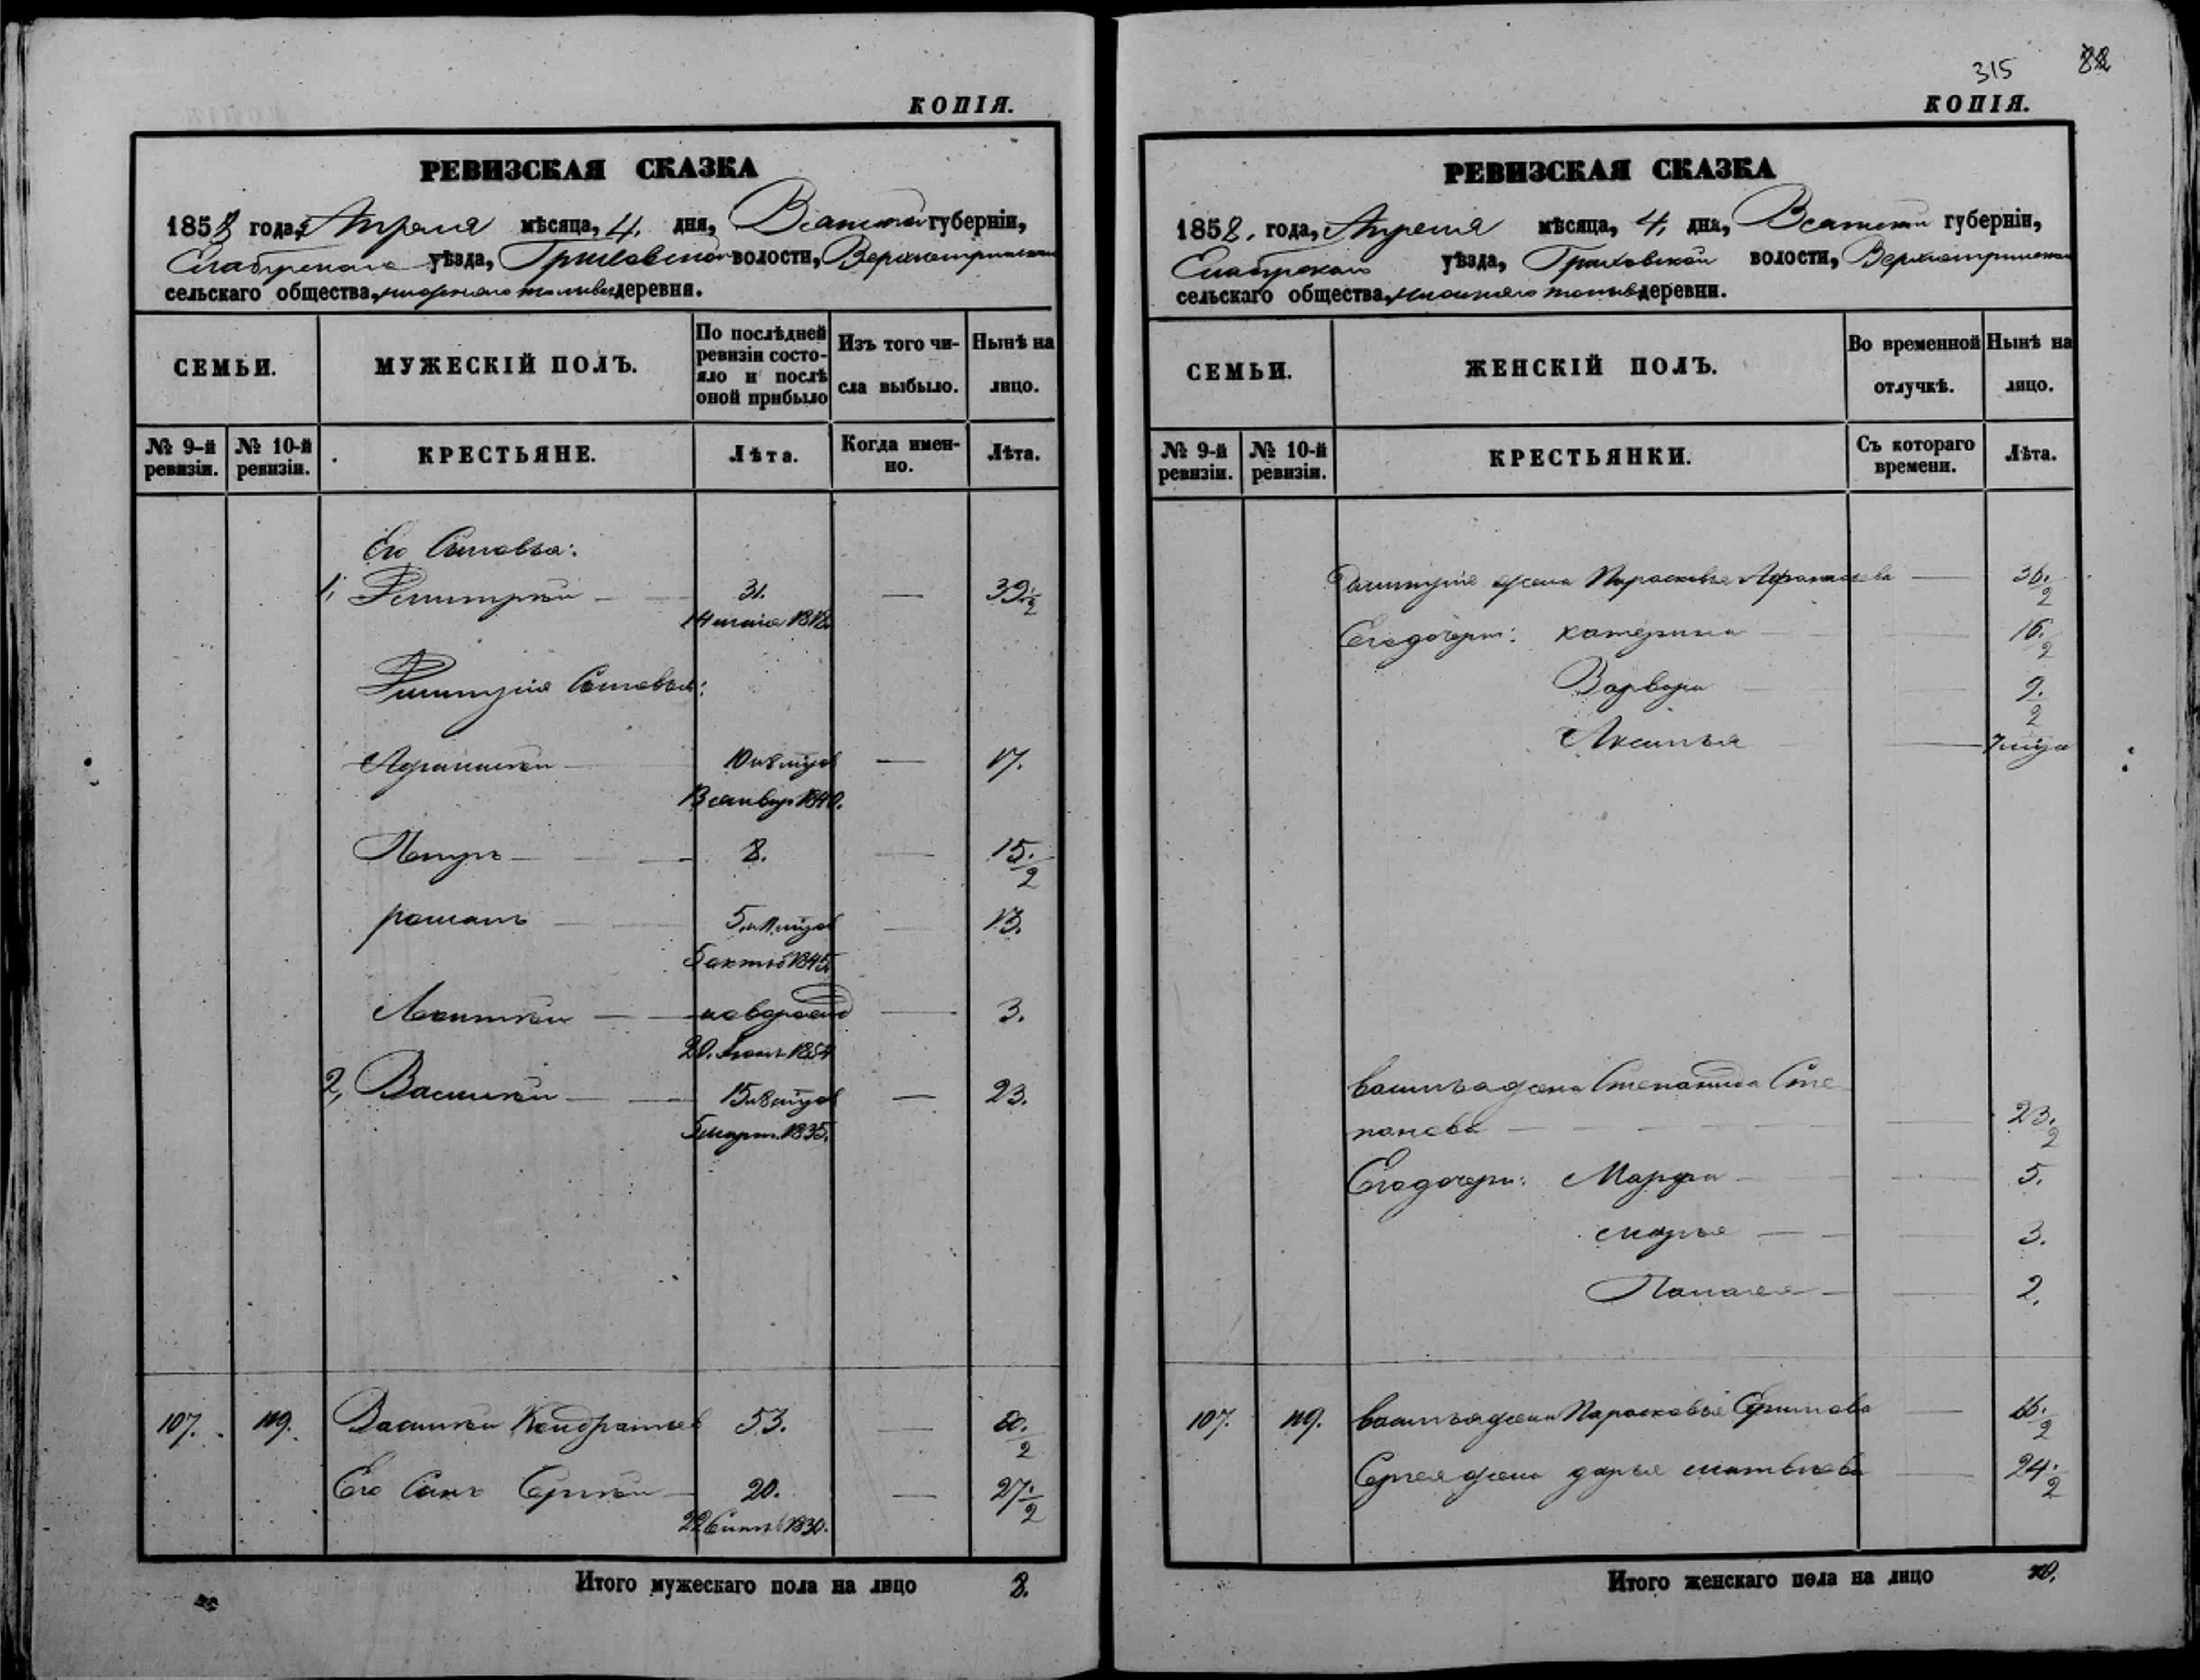 КОПІЯ.
РЕВИЗСКАЯ СКАЗКА
1858 года, Апреля мѣсяца, 4. дня, Вятской губерніи,
Елабужскаго уѣзда, Граховской волости,
сельскаго общества, деревня.
СЕМЬИ.
МУЖЕСКІЙ ПОЛЪ.
По послѣдней ревизіи состояло и послѣ оной прибыло
Изъ того числа выбыло.
Нынѣ на лицо.
№ 9-й ревизіи.
№ 10-й ревизіи.
КРЕСТЬЯНЕ.
Лѣта.
Когда именно.
Лѣта.
Его Сыновья:
1, Дмитрій — 31. — 39 1/2
Дмитрія Сыновья:
Афанасій — — 17.
Петръ — 8. — 15. 1/2
романъ — — 13.
— новорожд — 3.
2, Василій — — 23.
5 март. 1835.
107. 119. Василій Кондратьев 53. — 60. 1/2
Его Сынъ Сергѣй — 20. — 27. 1/2
1830.
Итого мужескаго пола на лицо 8.
315 82
КОПІЯ.
РЕВИЗСКАЯ СКАЗКА
1858. года, Апреля мѣсяца, 4. дня, Вятской губерніи,
Елабужскаго уѣзда, Граховской волости,
сельскаго общества, деревни.
СЕМЬИ.
ЖЕНСКІЙ ПОЛЪ.
Во временной отлучкѣ.
Нынѣ на лицо.
№ 9-й ревизіи.
№ 10-й ревизіи.
КРЕСТЬЯНКИ.
Съ котораго времени.
Лѣта.
Дмитрія жена Парасковья Афанасьева — 36. 1/2
Его дочери: катерина — 16. 1/2
Варвара — 9. 1/2
Аксинья —
василья жена Степанида Сте
панова — 23. 1/2
Его дочери: Марфа — 5.
марья — 3.
Палагея — 2.
107. 119. василья жена Парасковья —
Сергея жена дарья матвѣева — 24. 1/2
Итого женскаго пола на лицо 10.